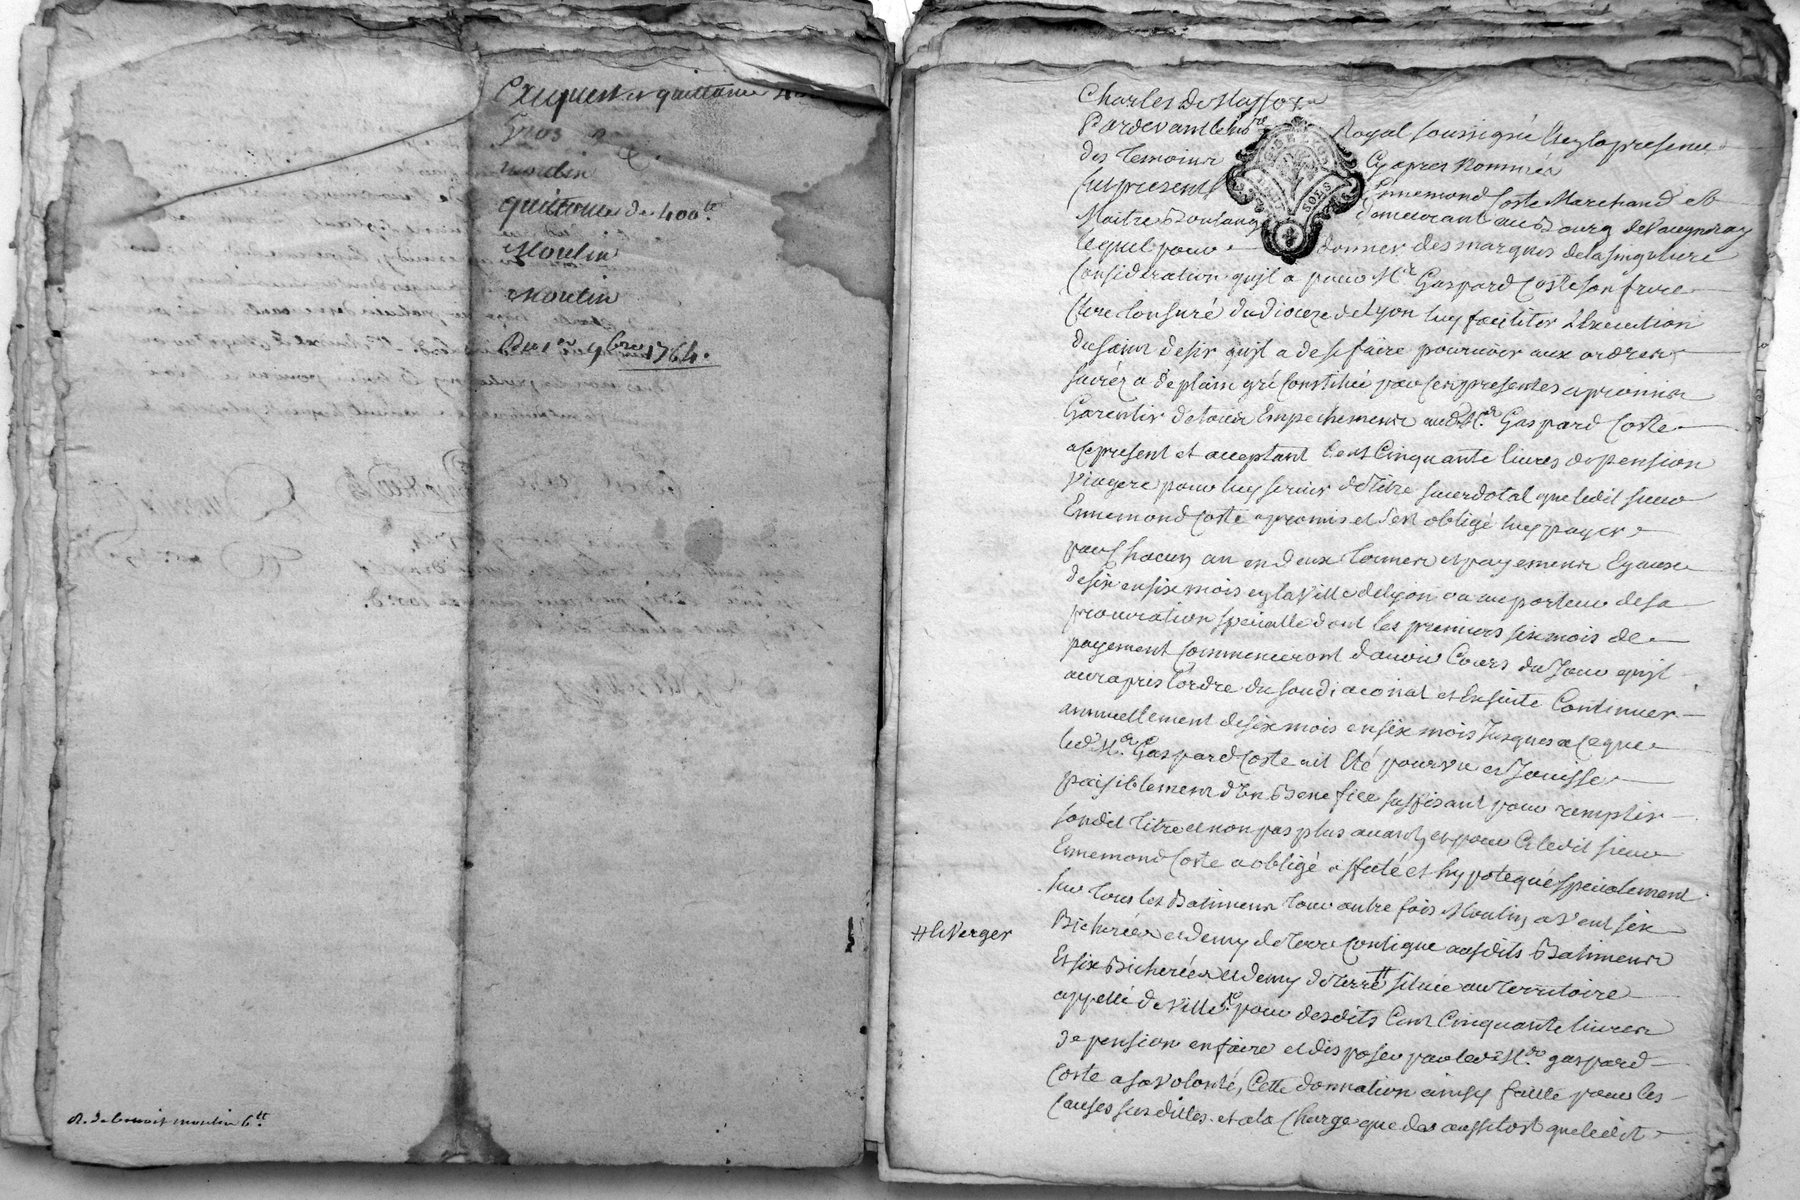 Exequest et quittance
Gros
moulin
quittance de 400lt
Moulin
Moulin
Du 1er 9bre 1764.
R. de benoit moulin 6tt
Charles de Masso
Pardevant le no.re Royal soussigné & en la presence
des temoins Cy apres Nommés
fut present Ennemond Coste Marchand et
Maitre Boulanger demeurant au Bourg de Vaugneray
lequel pour donner des marques de la singuliere
Consideration qu'il a pour Mr Gaspard Coste son frere
Clerc tonsuré du Dioceze de Lyon luy faciliter L'Execution
du saint desir qu'il a de se faire pourvoir aux ordres
sacréz a de plain gré Constitué par ses presentes a promis
Garentir de tous Empechements aud. Mr. Gaspard Coste
a ce present et acceptant Cent Cinquante livres de pension
viagere pour luy servir de titre sacerdotal que ledit sieur
Ennemond Coste a promis et s'est obligé luy payer
par Chacun an en deux termes et payements Egaux
de six en six mois en la Ville de Lyon ou au porteur de sa
procuration specialle dont les premiers six mois de
payement Commenceront d'avoir Cours du Jour qu'il
aura pris l'ordre du soudiaconat et Ensuite Continuer
annuellement de six mois en six mois Jusques a ce que
led. Mr. Gaspard Coste ait Eté pourvu et Jouisse
paisiblement d'Un Benefice suffisant pour remplir
sondit titre et non pas plus avant, et pour Ce ledit sieur
Ennemond Coste a obligé affecté et hypotequé specialement
sur tous les Batiments tour autre fois Moulin a Vent six
Bicherées et demy de terre Contigue auxdits Batiments
# le Verger
Et six Bicherées et demy de terre # située au Territoire
appellé de Ville pour desdits Cent Cinquante livres
de pension en faire et disposer par led. Mr. gaspard
Coste a sa Volonté, Cette donnation ainsy faitte pour les
Causes susdittes et a la Charge que des aussitost que ledit